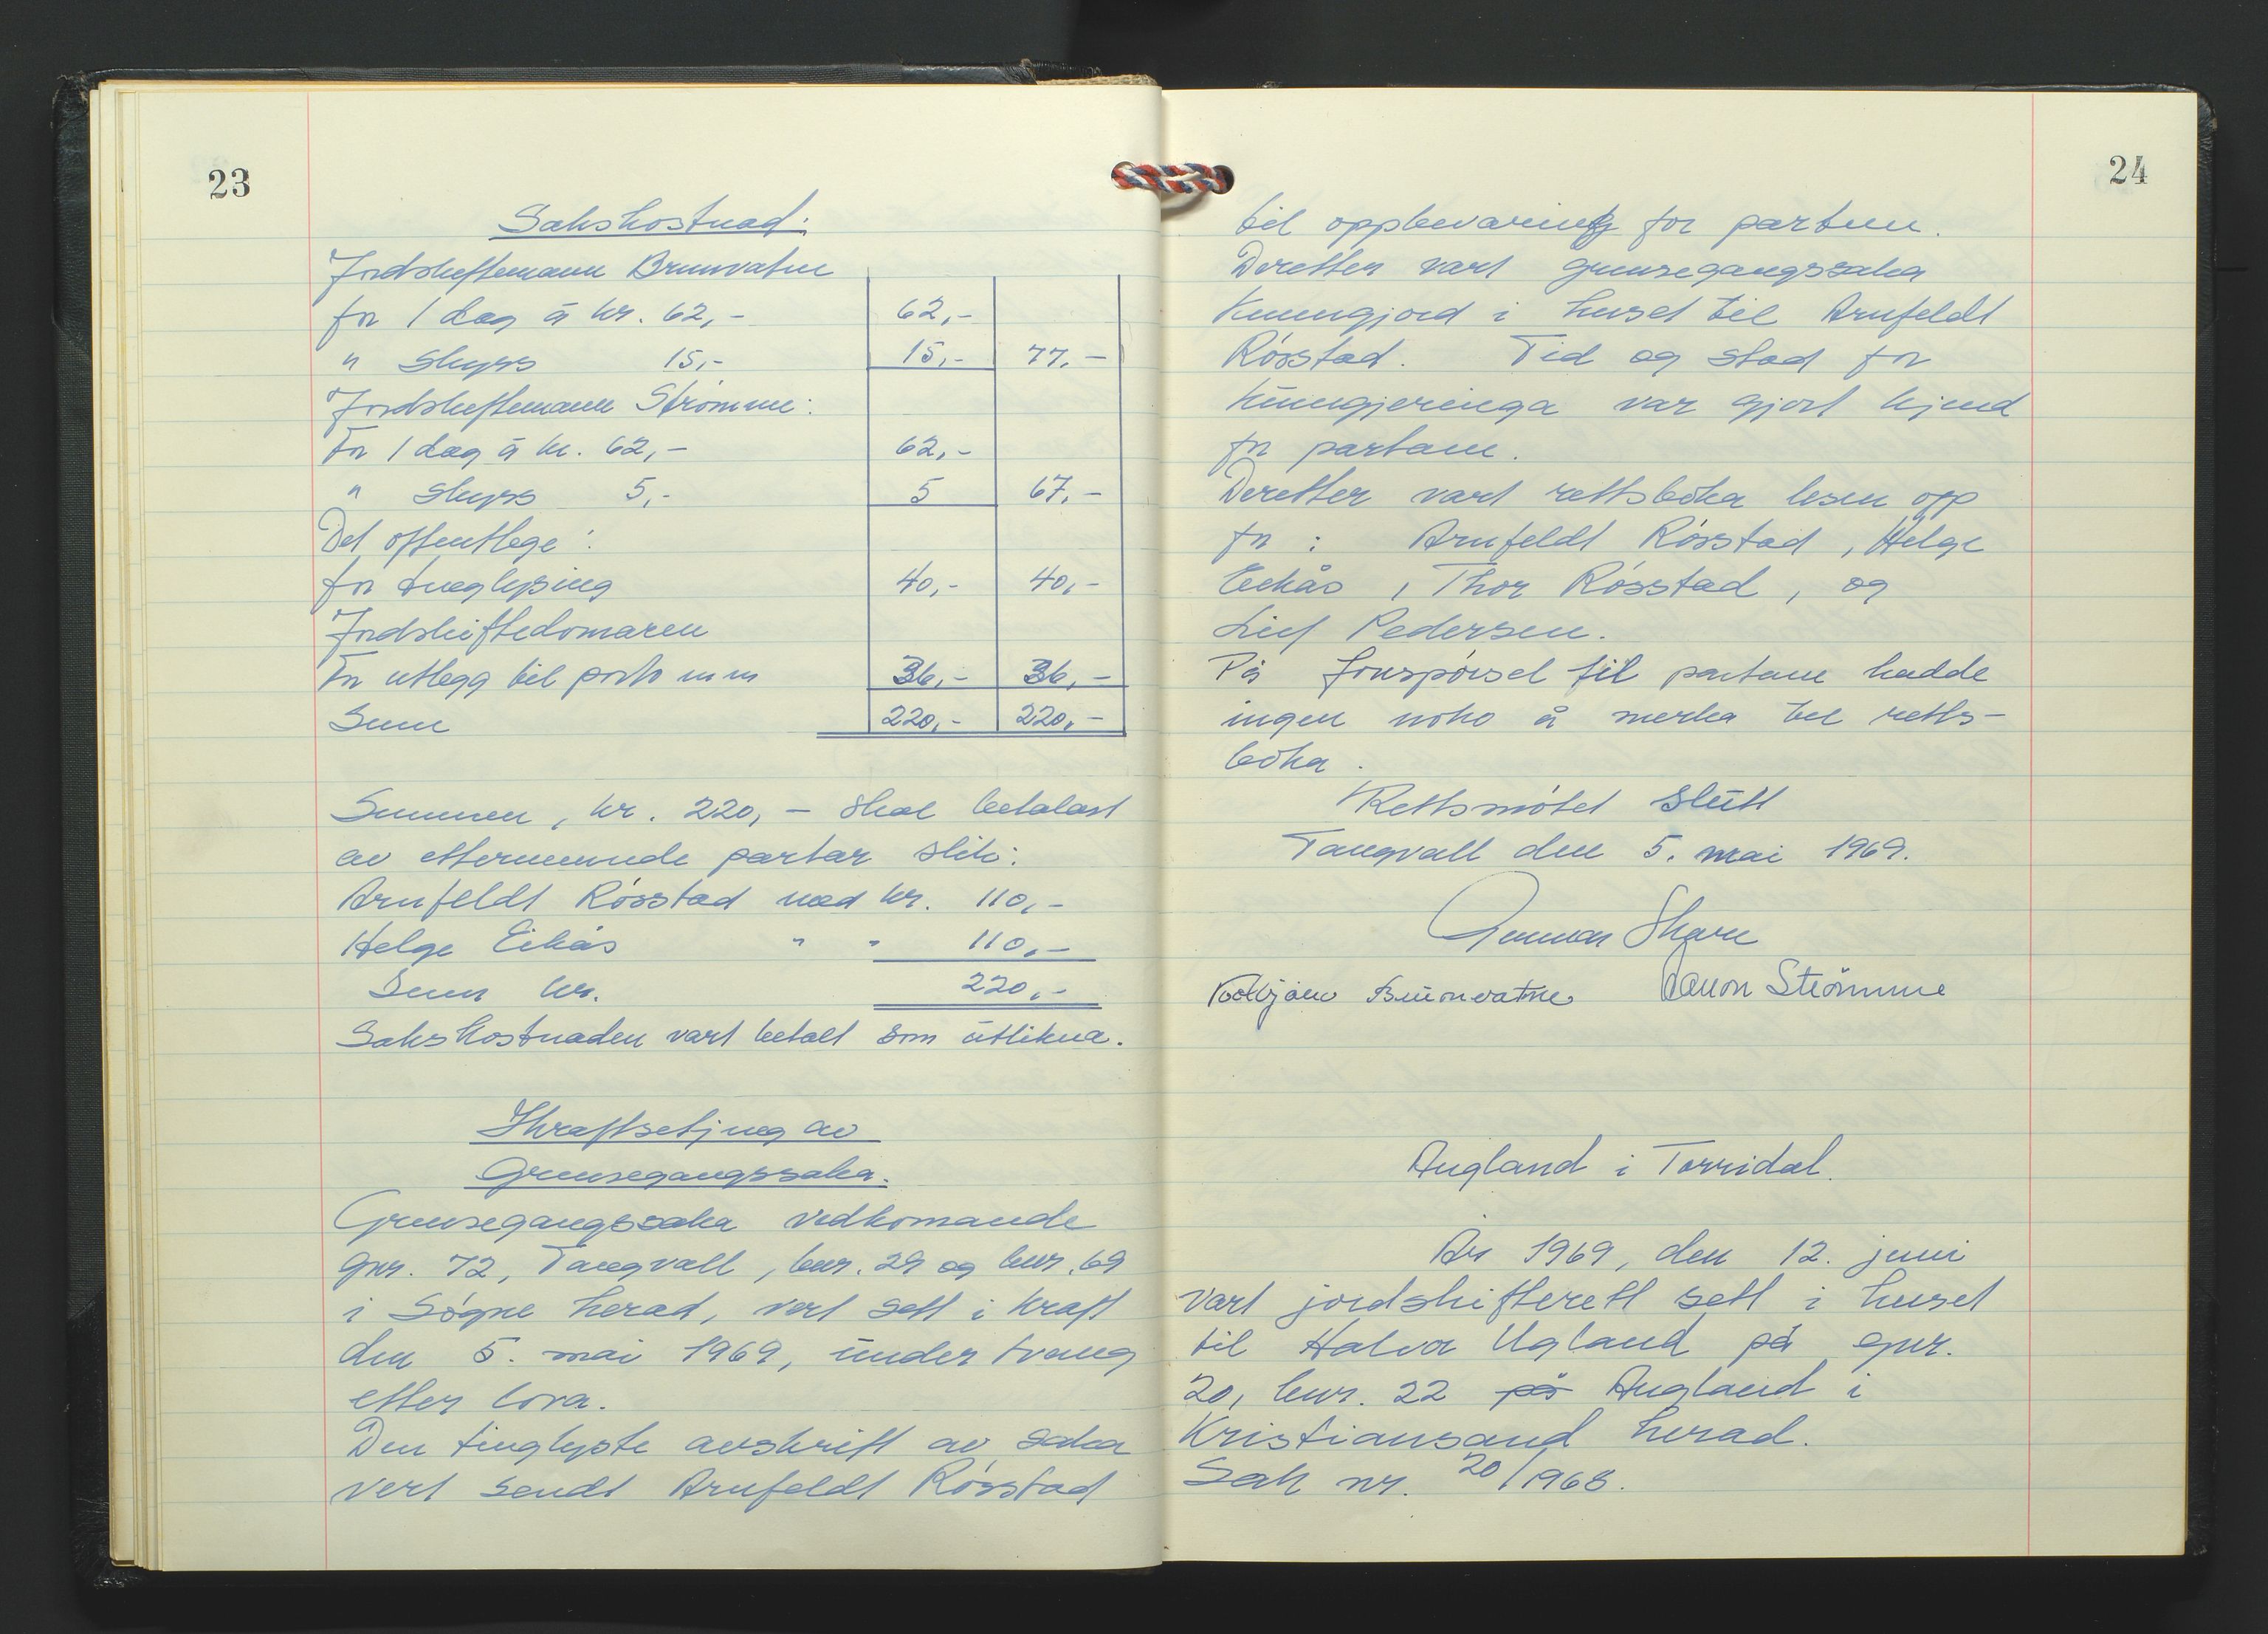 23
Sakskostnad:
Jordskiftemann Brunvatne
for 1 dag à kr. 62,- 62,-
" skyss 15,- 15,- 77,-
Jordskiftemann Strømme:
For 1 dag à kr. 62,- 62,-
" skyss 5,- 5 67,-
Det offentlege:
for tinglysing 40,- 40,-
Jordskiftedomaren
For utlegg til porto m m 36,- 36,-
Sum 220,- 220,-
Summen, kr. 220,- skal betalast
av etternemnde partar slik:
Arnfeldt Røsstad med kr. 110,-
Helge Eikås " " 110,-
Sum kr. 220,-
Sakskostnaden vart betalt som utlikna.
Ikraftsetjing av
Grensegangssaka.
Grensegangssaka vedkomande
gnr. 72, Tangvall, bnr. 29 og bnr. 69
i Søgne herad, vert sett i kraft
den 5. mai 1969, under tvang
etter lova.
Den tinglyste avskrift av saka
vert sendt Arnfeldt Røsstad
24
til oppbevaring for partene.
Deretter vart grensegangssaka
kunngjord i huset til Arnfeldt
Røsstad. Tid og stad for
kunngjeringa var gjort kjend
for partane.
Deretter vart rettsboka lesen opp
for: Arnfeldt Røsstad, Helge
Eikås, Thor Røsstad, og
Leif Pedersen.
På fyrespørsel til partane hadde
ingen noko å merka til retts-
boka.
Rettsmøtet slutt
Tangvall den 5. mai 1969.
Gunnar Skare
Torbjørn Brunvatne Aanon Strømme
Augland i Torridal.
År 1969, den 12. juni
vart jordskifterett sett i huset
til Halvor Ugland på gnr.
20, bnr. 22 på Augland i
Kristiansand herad.
Sak nr. 20/1968.